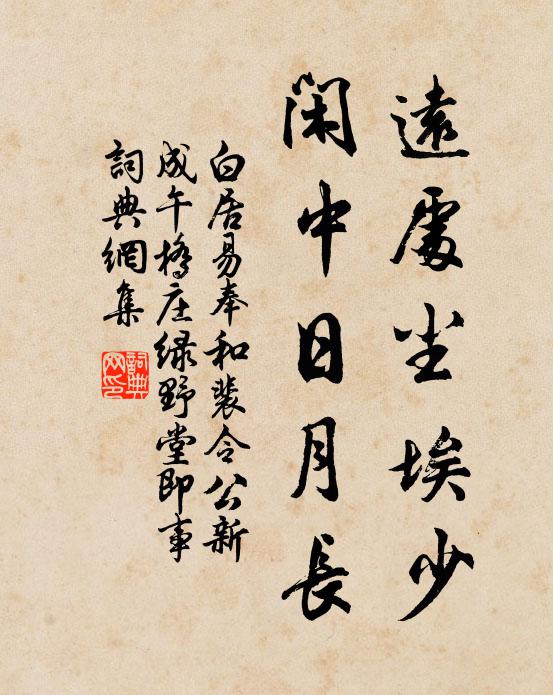 遠處尘埃少
閑中日月長
白居易奉和裴令公新
成午橋庄緑野堂即事
詞典網集
詞典
网印